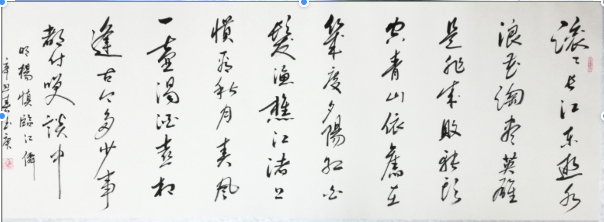 滚滚长江东逝水
浪花淘尽英雄
是非成败转头
空青山依舊在
几度夕陽红白
髮渔樵江渚上
惯看秋月春风
一壶浊酒喜相
逢古今多少事
都付笑談中
明楊慎臨江僊
辛丑春